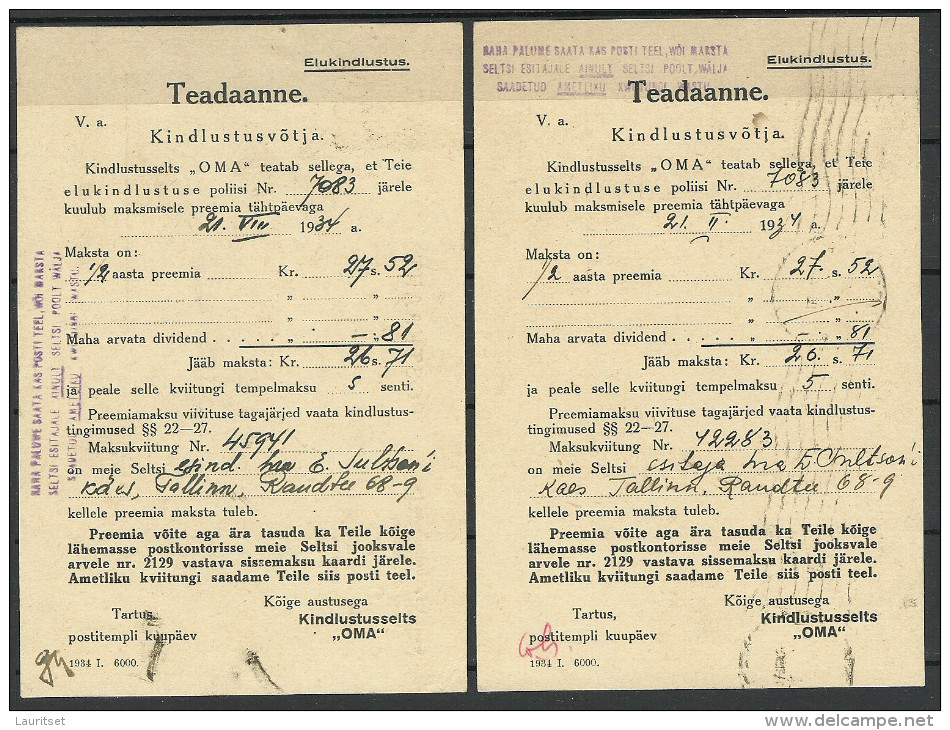 Elukindlustus.
Teadaanne.
V. a.
Kindlustusvõtja.
Kindlustusselts „OMA“ teatab sellega, et Teie
elukindlustuse poliisi Nr. 7083 järele
kuulub maksmisele preemia tähtpäevaga
21. VIII 1934 a.
Maksta on:
1/2 aasta preemia Kr. 27 s. 52
„ „
„ „
Maha arvata dividend . . . . . . . „ — „ 81
Jääb maksta: Kr. 26 s. 71
ja peale selle kviitungi tempelmaksu 5 senti.
Preemiamaksu viivituse tagajärjed vaata kindlustus-
tingimused §§ 22—27.
Maksukviitung Nr. 45941
on meie Seltsi esind. hra E.
käes, Tallinn, Raudtee 68-9
kellele preemia maksta tuleb.
Preemia võite aga ära tasuda ka Teile kõige
lähemasse postkontorisse meie Seltsi jooksvale
arvele nr. 2129 vastava sissemaksu kaardi järele.
Ametliku kviitungi saadame Teile siis posti teel.
Kõige austusega
Tartus,
Kindlustusselts
postitempli kuupäev
„OMA“
1934 I. 6000.
RAHA PALUME SAATA KAS POSTI TEEL, WÕI MAKSTA
SELTSI ESITAJALE AINULT SELTSI POOLT WÄLJA
SAADETUD AMETLIKU KWIITUNGI WASTU.
RAHA PALUME SAATA KAS POSTI TEEL, WÕI MAKSTA
SELTSI ESITAJALE AINULT SELTSI POOLT WÄLJA
SAADETUD AMETLIKU KWIITUNGI WASTU
Elukindlustus.
Teadaanne.
V. a.
Kindlustusvõtja.
Kindlustusselts „OMA“ teatab sellega, et Teie
elukindlustuse poliisi Nr. 7083 järele
kuulub maksmisele preemia tähtpäevaga
21. II. 1934 a.
Maksta on:
1/2 aasta preemia Kr. 27. s. 52
„ „
„ „
Maha arvata dividend . . . . . . . „ — „ 81
Jääb maksta: Kr. 26. s. 71
ja peale selle kviitungi tempelmaksu 5 senti.
Preemiamaksu viivituse tagajärjed vaata kindlustus-
tingimused §§ 22—27.
Maksukviitung Nr. 42283
on meie Seltsi esitaja hra E.
käes Tallinn, Raudtee 68-9
kellele preemia maksta tuleb.
Preemia võite aga ära tasuda ka Teile kõige
lähemasse postkontorisse meie Seltsi jooksvale
arvele nr. 2129 vastava sissemaksu kaardi järele.
Ametliku kviitungi saadame Teile siis posti teel.
Kõige austusega
Tartus,
Kindlustusselts
postitempli kuupäev
„OMA“
1934 I. 6000.
Lauritset
www.delcampe.net